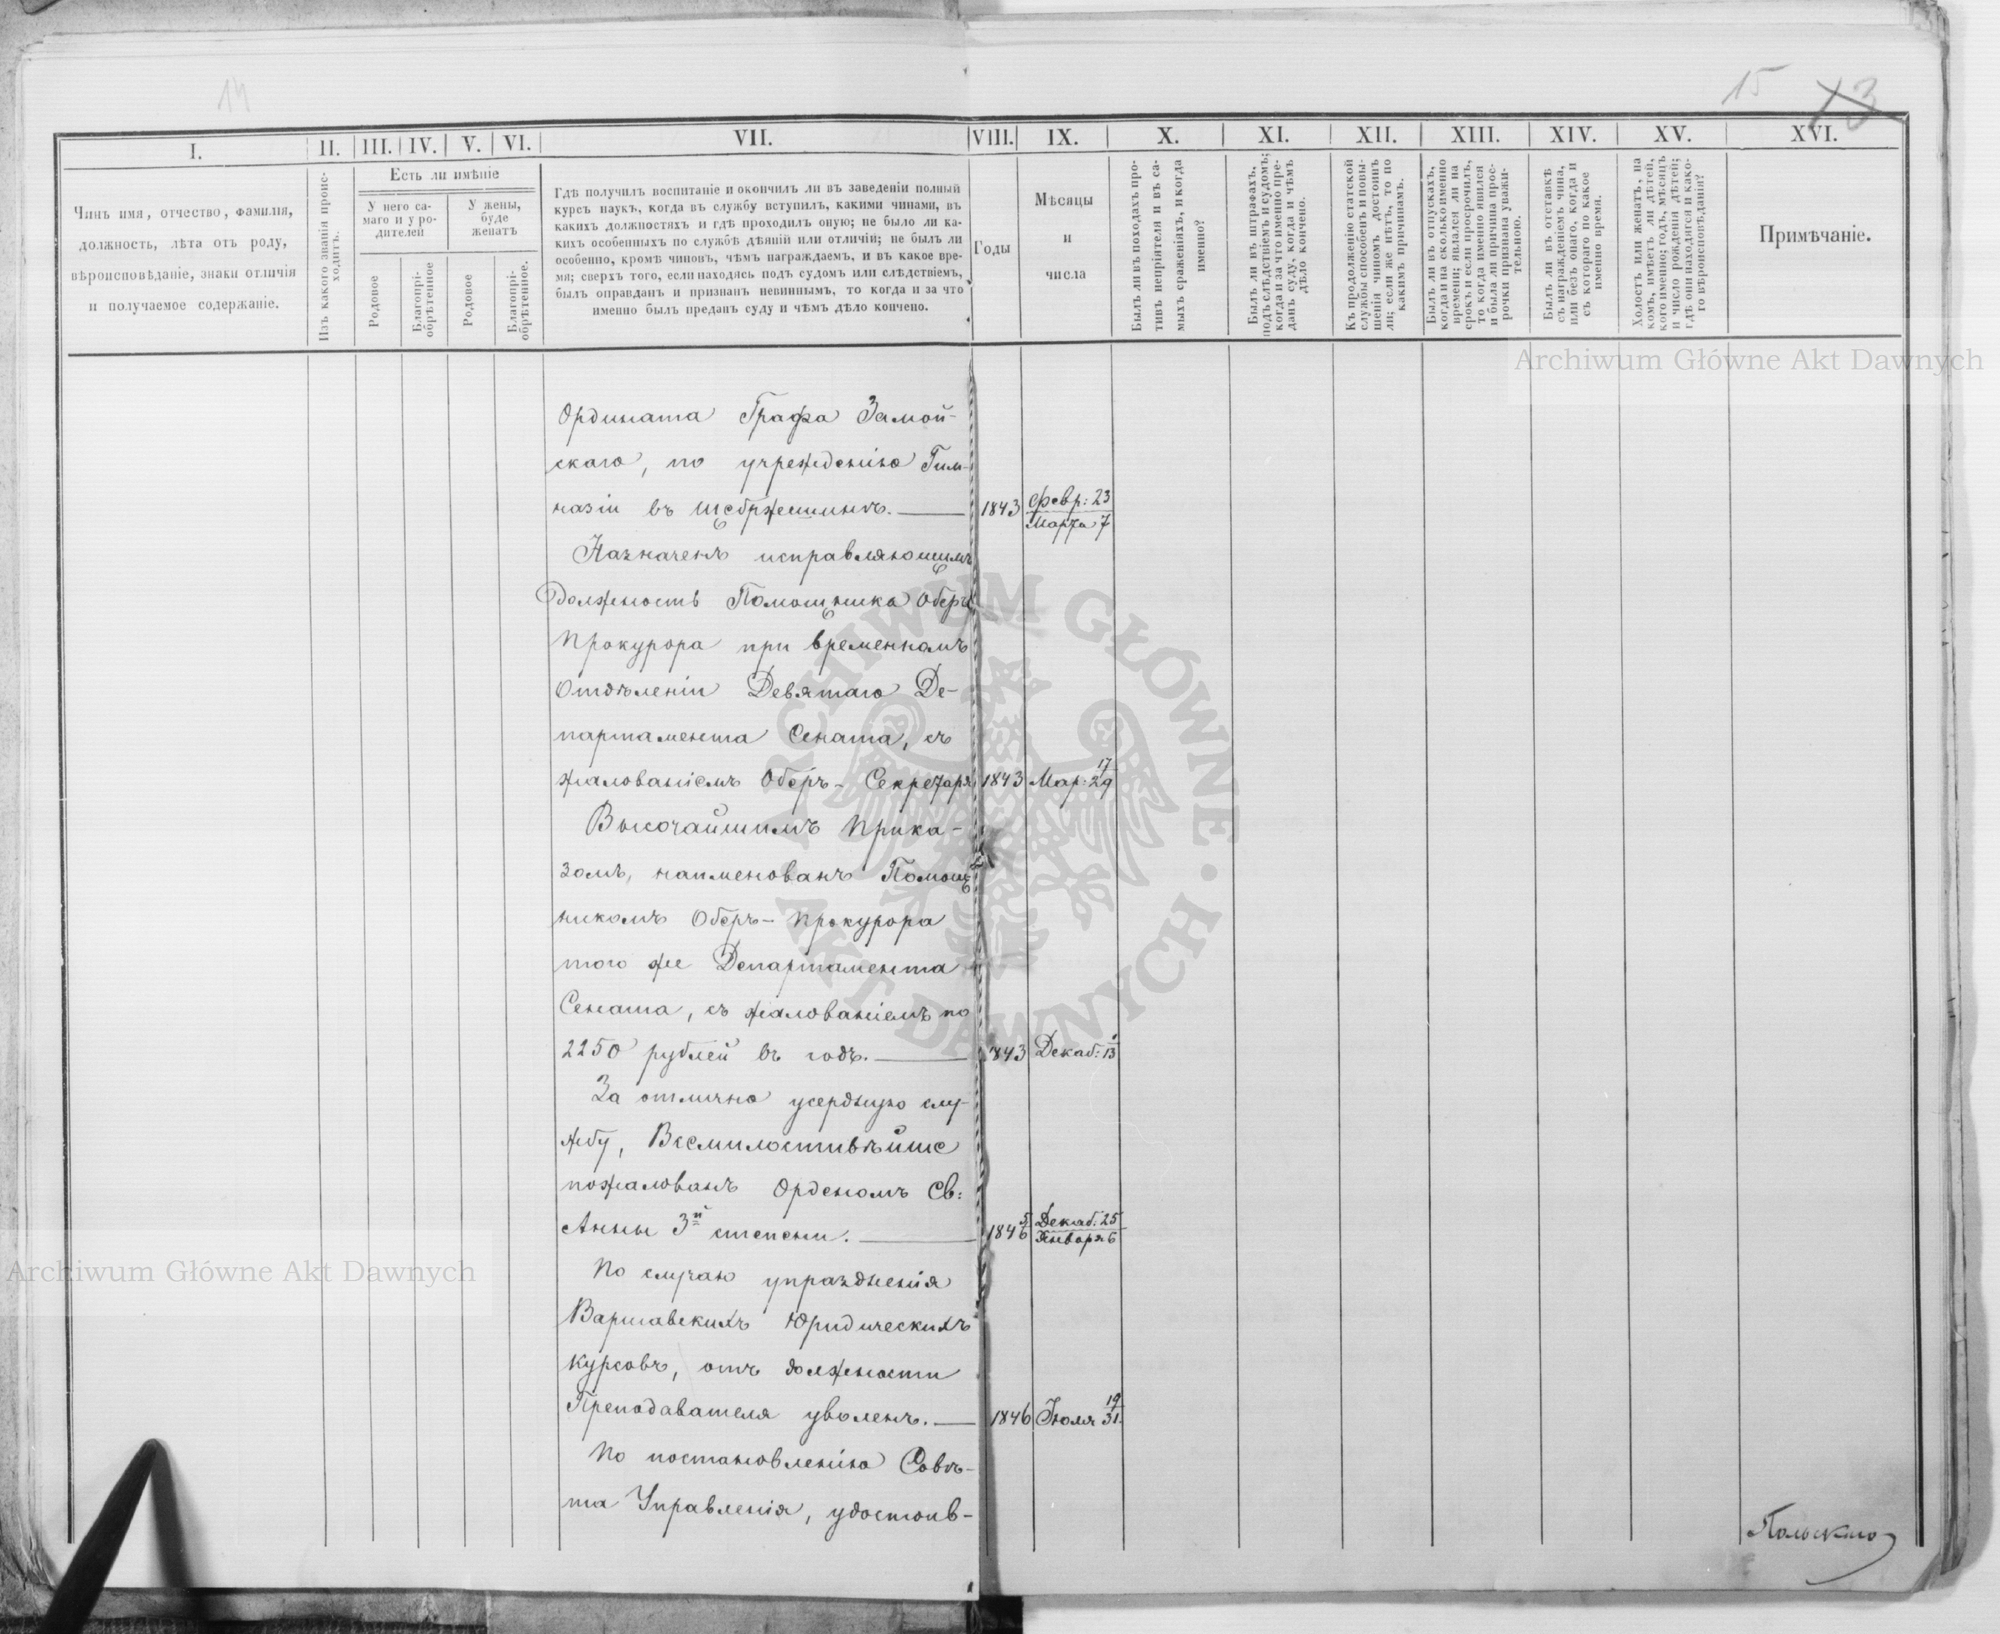 14
15
13
I.
II.
III.
IV.
V.
VI.
VII.
VIII.
IX.
X.
XI.
XII.
XIII.
XIV.
XV.
XVI.
Чинъ имя, отчество, фамилія,
должность, лѣта отъ роду,
вѣроисповѣданіе, знаки отличія
и получаемое содержаніе.
Изъ какого званія проис-
ходитъ.
Есть ли имѣніе
У него са-
маго и у ро-
дителей
У жены,
буде
женатъ
Родовое
Благопрі-
обрѣтенное
Родовое
Благопрі-
обрѣтенное.
Гдѣ получилъ воспитаніе и окончилъ ли въ заведеніи полный
курсъ наукъ, когда въ службу вступилъ, какими чинами, въ
какихъ должностяхъ и гдѣ проходилъ оную; не было ли ка-
кихъ особенныхъ по службѣ дѣяній или отличій; не былъ ли
особенно, кромѣ чиновъ, чѣмъ награждаемъ, и въ какое вре-
мя; сверхъ того, если находясь подъ судомъ или слѣдствіемъ,
былъ оправданъ и признанъ невиннымъ, то когда и за что
именно былъ преданъ суду и чѣмъ дѣло кончено.
Годы
Мѣсяцы
и
числа
Былъ ли въ походахъ про-
тивъ непріятеля и въ са-
мыхъ сраженіяхъ, и когда
именно?
Былъ ли въ штрафахъ,
подъ слѣдствіемъ и судомъ;
когда и за что именно пре-
данъ суду, когда и чѣмъ
дѣло кончено.
Къ продолженію статской
службы способенъ и повы-
шенія чиномъ достоинъ
ли; если же нѣтъ, то по
какимъ причинамъ.
Былъ ли въ отпускахъ,
когда и на сколько именно
времени; явился ли на
срокъ и если просрочилъ,
то когда именно явился
и была ли причина прос-
рочки признана уважи-
тельною.
Былъ ли въ отставкѣ
съ награжденіемъ чина,
или безъ онаго, когда и
съ котораго по какое
именно время.
Холостъ или женатъ, на
комъ, имѣетъ ли дѣтей,
кого именно; годъ, мѣсяцъ
и число рожденія дѣтей;
гдѣ они находятся и како-
го вѣроисповѣданія?
Примѣчаніе.
Ордината Графа Замой-
скаго, по учрежденію Гим-
назіи въ Щебржешинѣ. 1843 Февр: 23
Марта 7
Назначенъ исправляющимъ
Должность Помощника Оберъ
Прокурора при временномъ
Отдѣленіи Девятаго Де-
партамента Сената, съ
жалованіемъ Оберъ-Секретаря 1843 Мар: 17
29
Высочайшимъ Прика-
зомъ, наименованъ Помощ-
никомъ Оберъ-Прокурора
того же Департамента
Сената, съ жалованіемъ по
2250 рублей въ годъ. 1843 Декаб: 1
13
За отлично усердную слу-
жбу, Всемилостивѣйше
пожалованъ Орденомъ Св:
Анны 3й степени. 1845
6 Декаб: 25
Января 6
По случаю упраздненія
Варшавскихъ Юридическихъ
Курсовъ, отъ должности
Преподавателя уволенъ. 1846 Іюля 19
31.
По постановленію Совѣ-
та Управленія, удостоив-
Польскаго
Archiwum Główne Akt Dawnych
Archiwum Główne Akt Dawnych
ARCHIWUM GŁÓWNE · AKT DAWNYCH ·